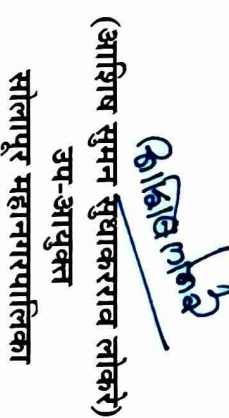 आशिष लोकरे
(आशिष सुमन सुधाकरराव लोकरे)
उप-आयुक्त
सोलापूर महानगरपालिका